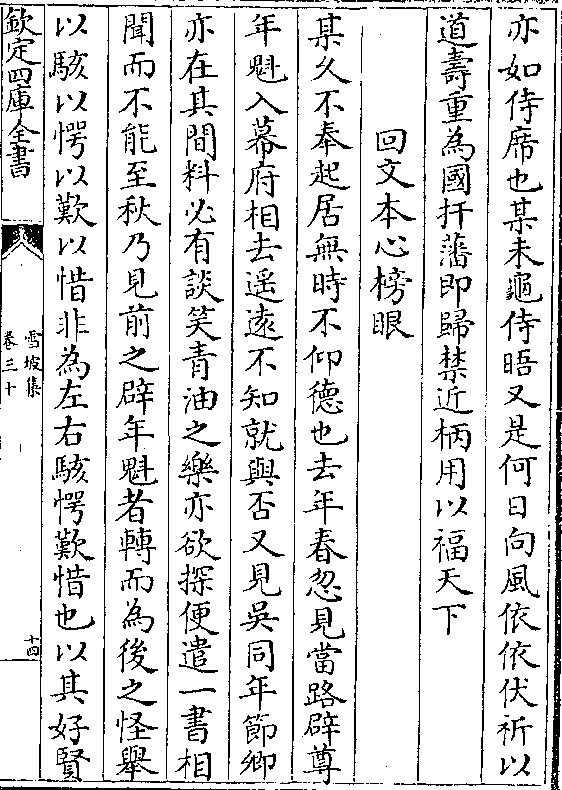 亦如侍席也某未龜侍晤又是何日向風依依伏祈以
道壽重為國扞藩即歸禁近柄用以福天下
回文本心榜眼
某久不奉起居無時不仰德也去年春忽見當路辟尊
年魁入幕府相去遥遠不知就與否又見吳同年節卿
亦在其間料必有談笑青油之樂亦欲探便遣一書相
聞而不能至秋乃見前之辟年魁者轉而為後之怪舉
以駭以愕以歎以惜非為左右駭愕歎惜也以其好賢
欽定四庫全書
雪坡集
卷三十
十四